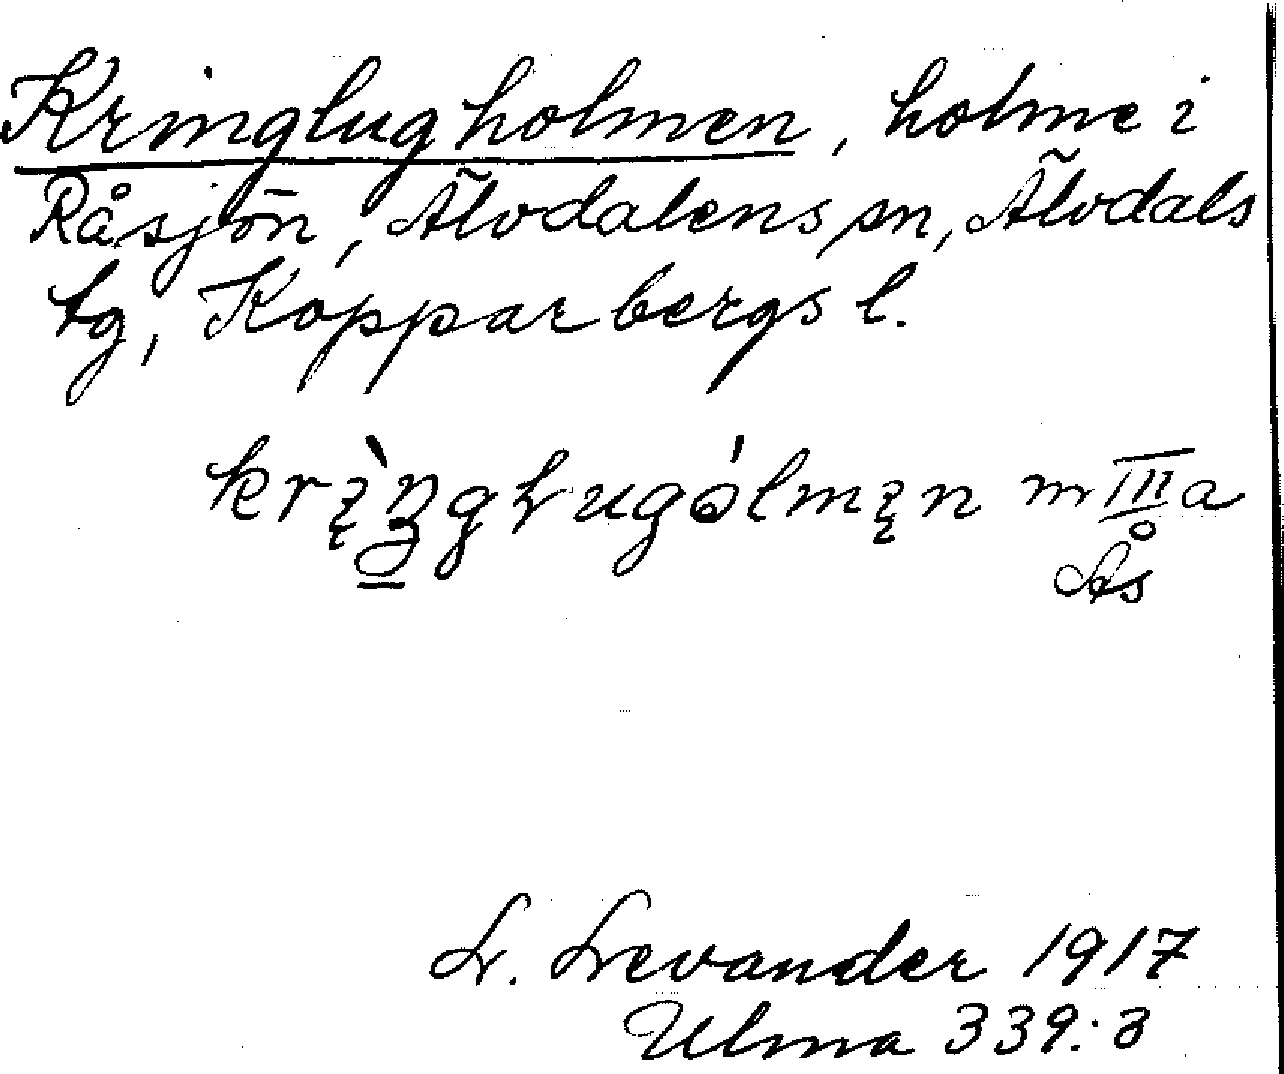 Kringlugholmen, holme i
Råsjön, Älvdalens sn, Älvdals
tg, Kopparbergs l.
m III a
Ås
L. Levander 1917
Ulma 339:3